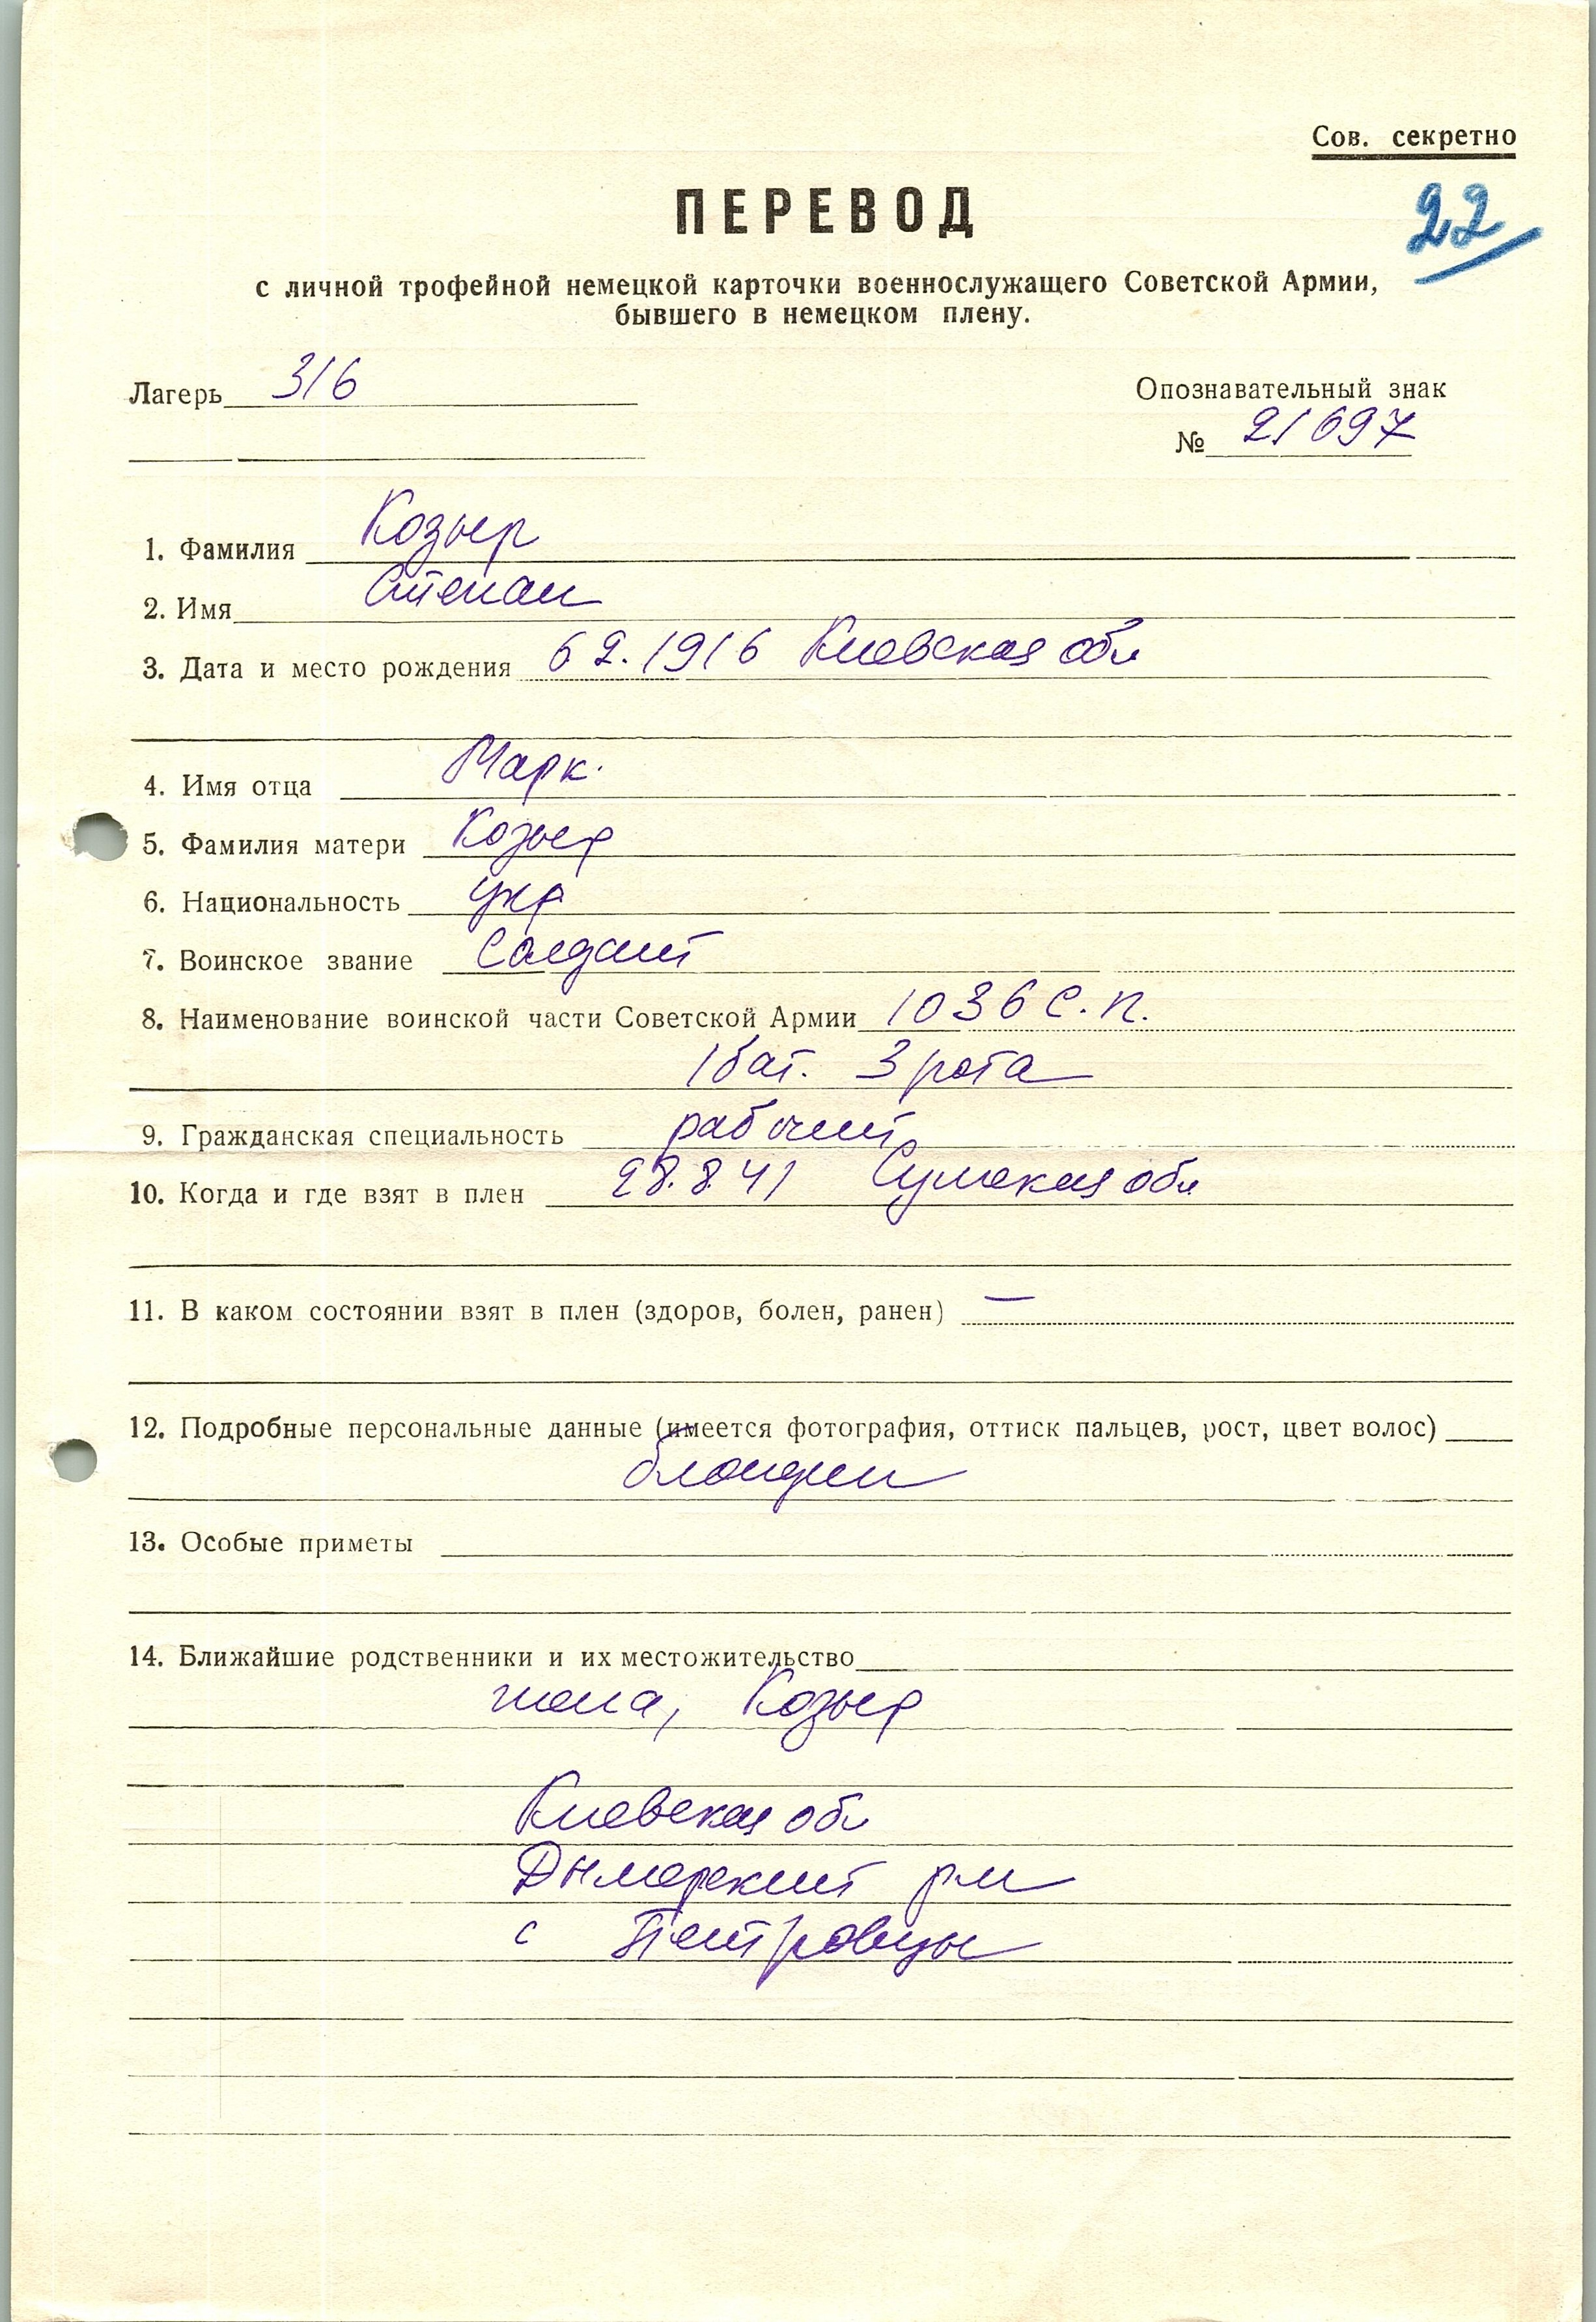 Сов. секретно
22
ПЕРЕВОД
с личной трофейной немецкой карточки военнослужащего Советской Армии,
бывшего в немецком плену.
Лагерь 316
Опознавательный знак
№ 21697
1. Фамилия Козыр
2. Имя Степан
3. Дата и место рождения 6 2. 1916 Киевская обл
4. Имя отца Марк.
5. Фамилия матери Козыр
6. Национальность укр
7. Воинское звание Солдат
8. Наименование воинской части Советской Армии 1036 с. п.
1 бат. 3 рота
9. Гражданская специальность рабочий
10. Когда и где взят в плен 28.8.41 Сумская обл
11. В каком состоянии взят в плен (здоров, болен, ранен) —
12. Подробные персональные данные (имеется фотография, оттиск пальцев, рост, цвет волос)
блондин
13. Особые приметы
14. Ближайшие родственники и их местожительство
жена, Козыр
Киевская обл
Дымерский р-н
с Петровцы